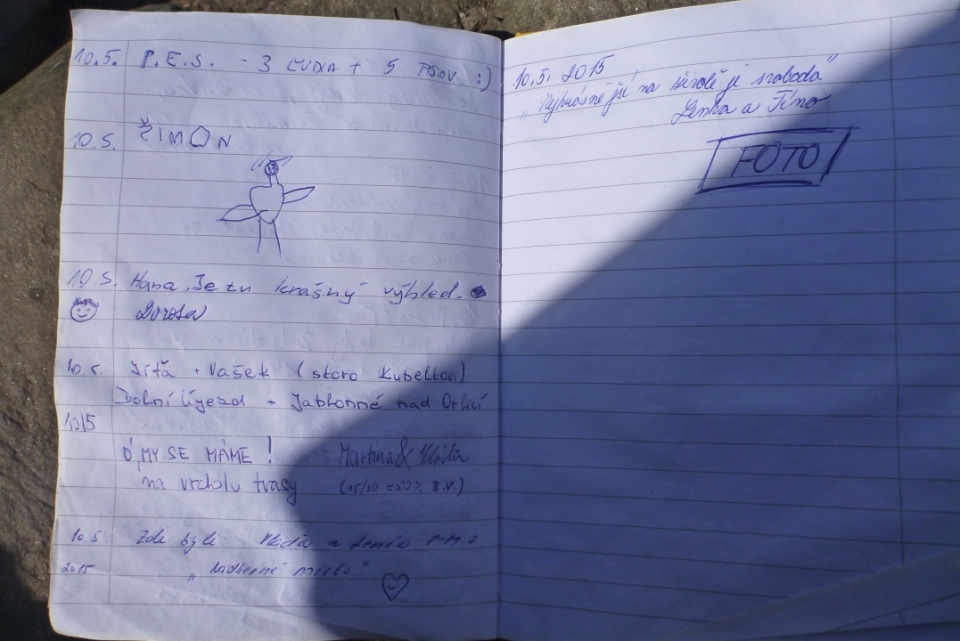 10.5. P.E.S. - 3 ĽUDIA + 5 PSOV :)
10.5. ŠIMON
10.5. Hana, Je tu krásný výhled.
Dorota
10.5. Jíťa + Vašek (skoro Kubelkovi)
Dolní Újezd + Jablonné nad Orlicí
10/5
Ó, MY SE MÁME! Martina &
na vrcholu trasy (15/30 = 50% 3.V.)
10.5 Zde byli a Lenka
2015 „nádherné místo."
10.5. 2015
„Nejkrásnější na is svoboda"
Lenka a Tino
FOTO